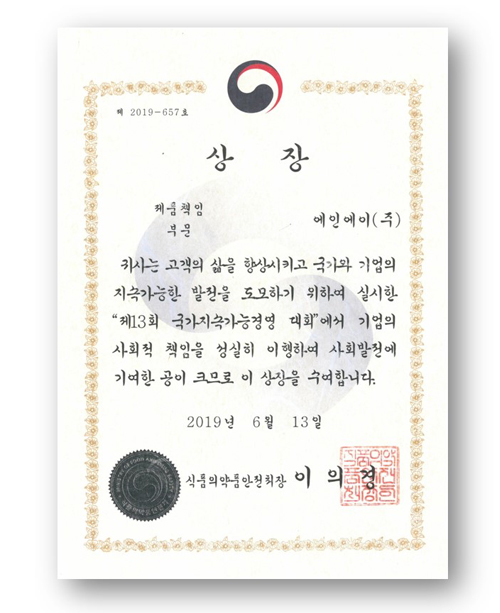 제 2019-657호
상 장
제품책임
부문
에인에이(주)
귀사는 고객의 삶을 향상시키고 국가와 기업의
지속가능한 발전을 도모하기 위하여 실시한
“제13회 국가지속가능경영 대회”에서 기업의
사회적 책임을 성실히 이행하여 사회발전에
기여한 공이 크므로 이 상장을 수여합니다.
2019년 6월 13일
식품의약품안전처장 이 의 경